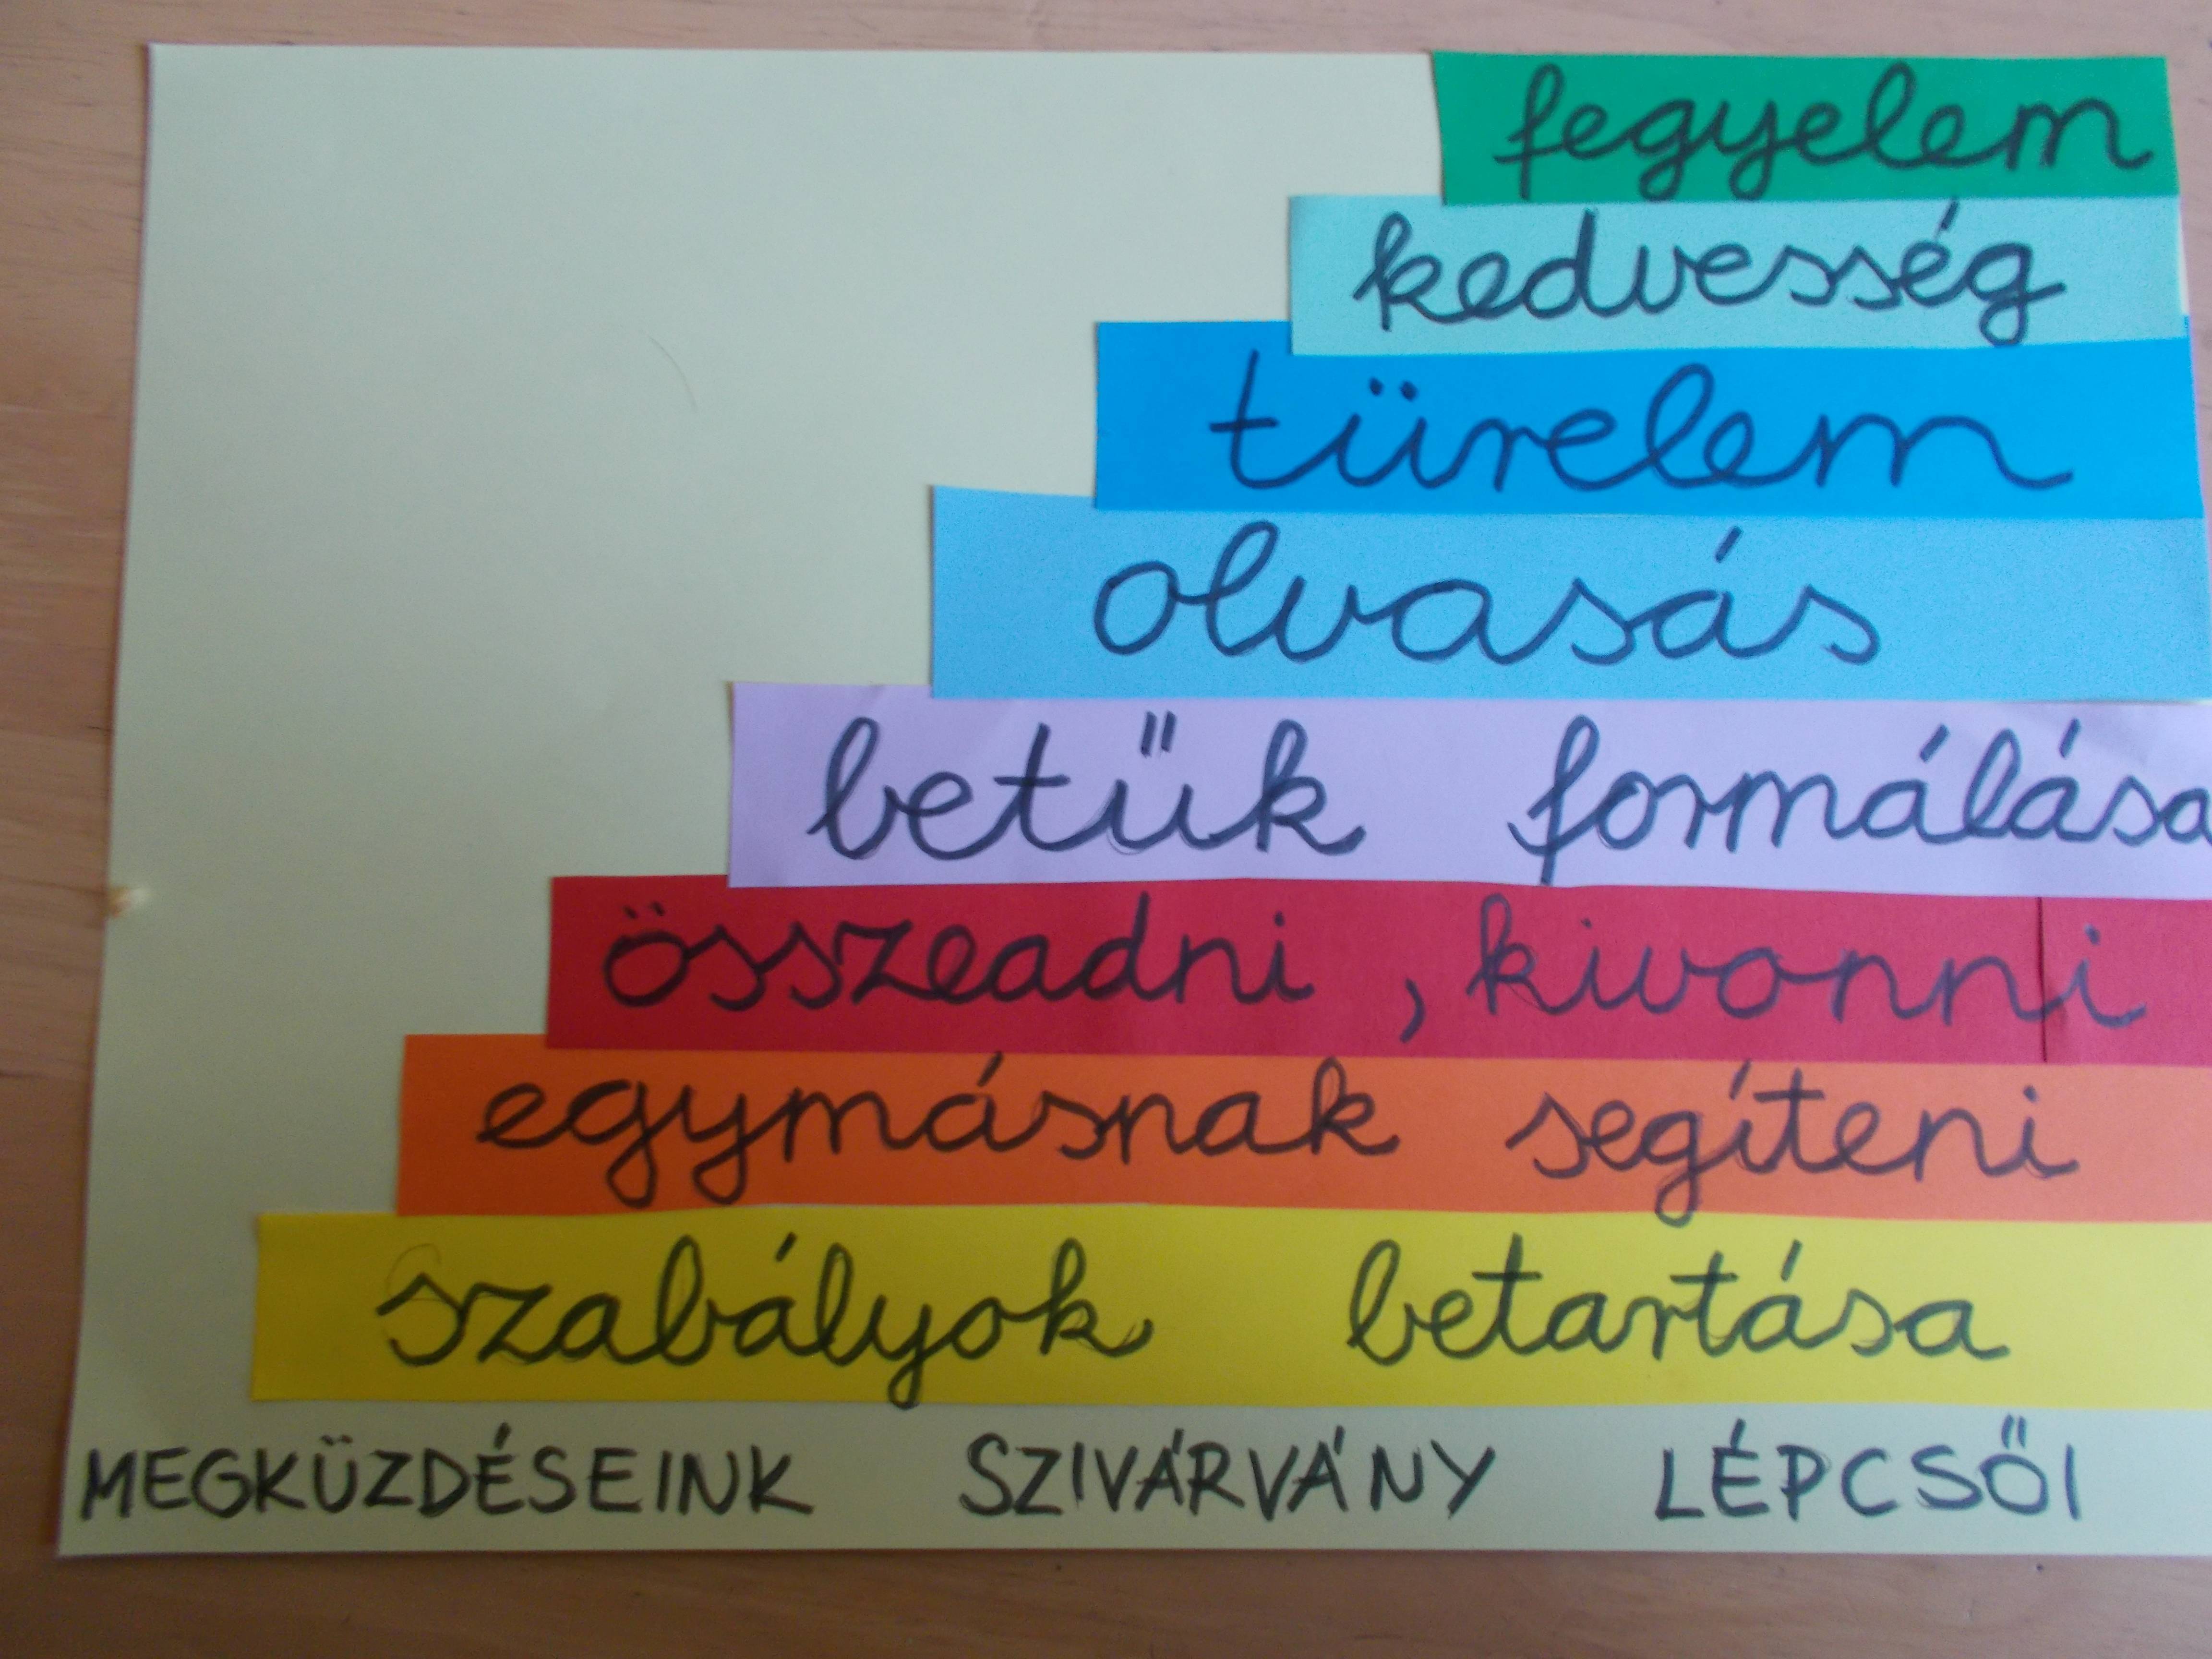 fegyelem
kedvesség
türelem
olvasás
betűk formálása
összeadni , kivonni
egymásnak segíteni
szabályok betartása
MEGKÜZDÉSEINK SZIVÁRVÁNY LÉPCSŐI